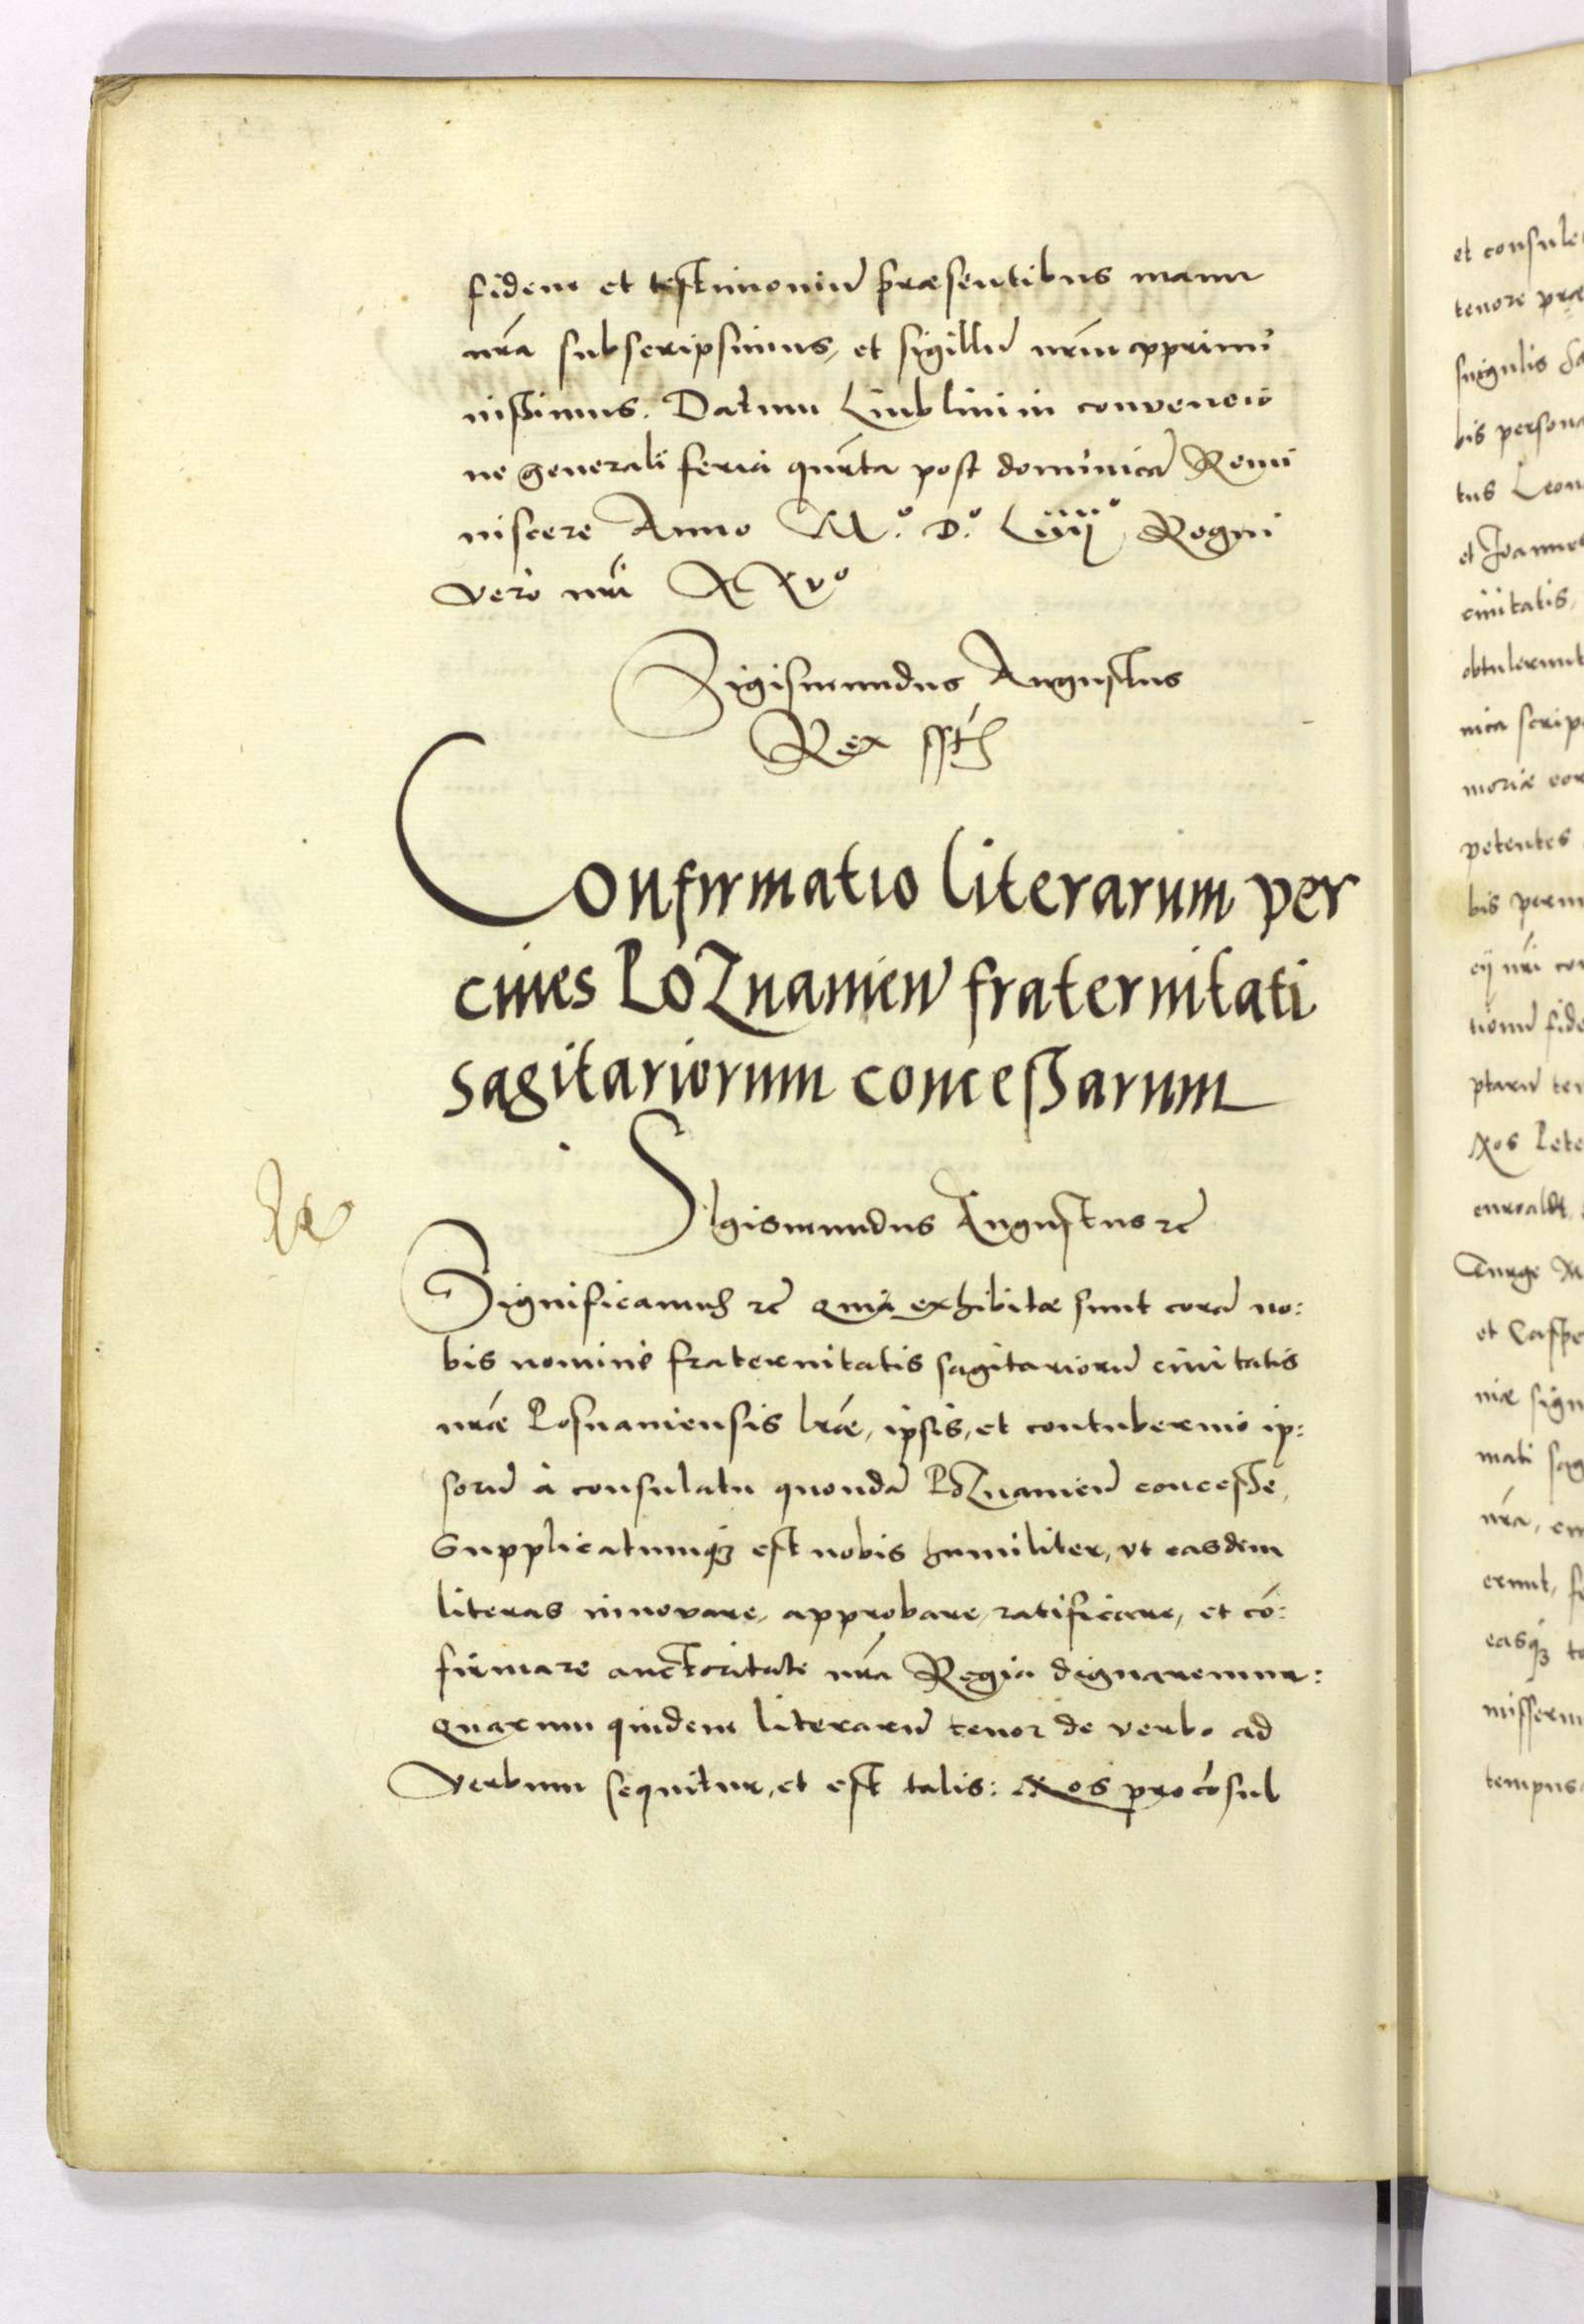 fidem et testimoniū præsentibus manu
nrā subscripsimus, et sigillū nrm̄ apprimi
iussimus. Datum Lublini in convencio
ne generali feria quīta post dominicā Remi
niscere Anno M.º D.º Liiij.º Regni
vero nrī XXVº
Sigismundus Augustus
Rex sst
Confirmatio literarum per
ciues PoZnanien̄ fraternitati
sagitariorum concessarum
Sigismundus Augustus ꝛc̄
Significamus ꝛc̄ quia exhibitæ sunt corā no:
bis nomine fraternitatis sagitariorū ciuitatis
nrǣ Posnaniensis lrǣ, ipsis, et contubernio ip:
sorū à consulatu quondā PoZnanien̄ concessæ,
Supplicatumqꝫ est nobis humiliter, vt easdem
literas innovare, approbare, ratificare, et cō:
firmare auctoritate nrā Regia dignaremur:
quarum quidem literarū tenor de verbo ad
verbum sequitur, et est talis: Nos procōsul
et consule
tenore præ
singulis
bis persona
tus Leon
et Joannes
ciuitatis,
obtulerunt
nica scrip
moriæ eor
petentes
bis perm
cij nrī con
tionū fide
ptarū ten
Nos Pete
et Caspe
niæ sign
mati sag
nrā, em
erunt, f
easqꝫ to
misserim
tempus